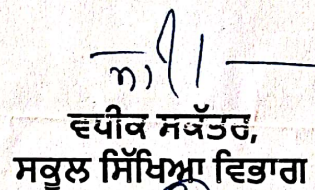 ਵਧੀਕ ਸਕੱਤਰ,
ਸਕੂਲ ਸਿੱਖਿਆ ਵਿਭਾਗ